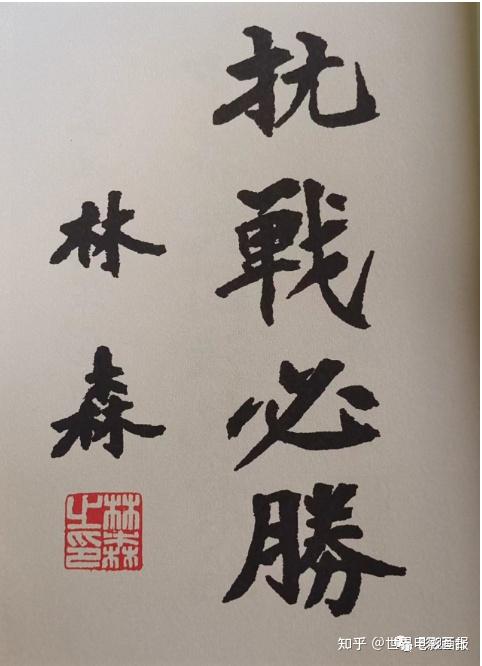 抗戰必勝
林森
林森之印
知乎 @世界电影画报